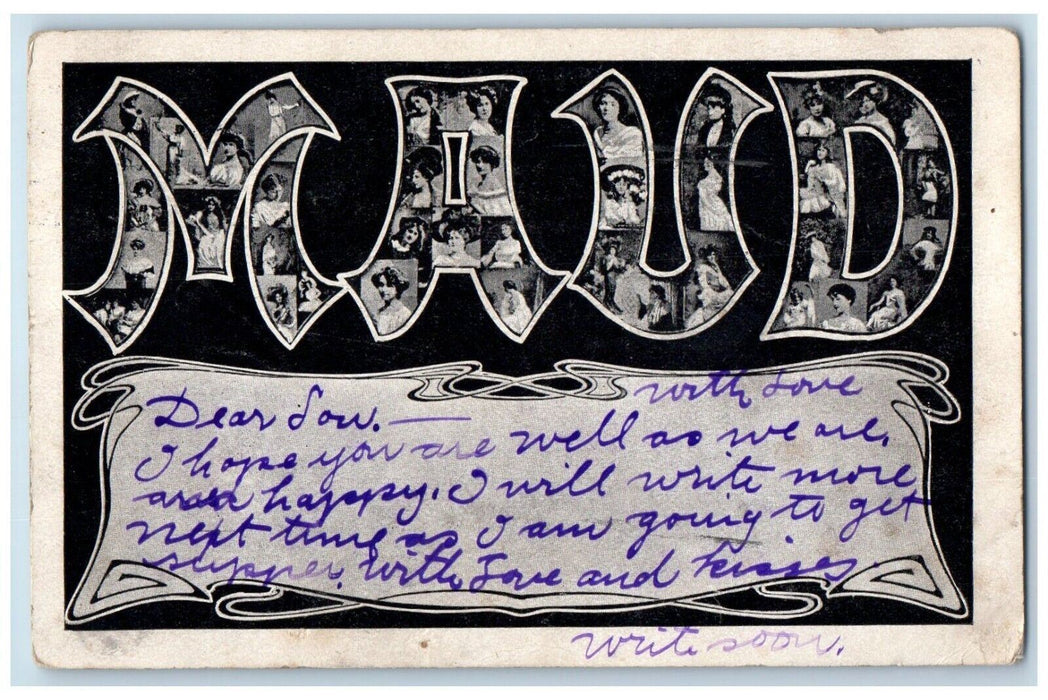 MAUD
with Love
Dear Son. —
I hope you are well as we are,
and happy. I will write more
next time as I am going to get
supper. With Love and kisses.
write soon.